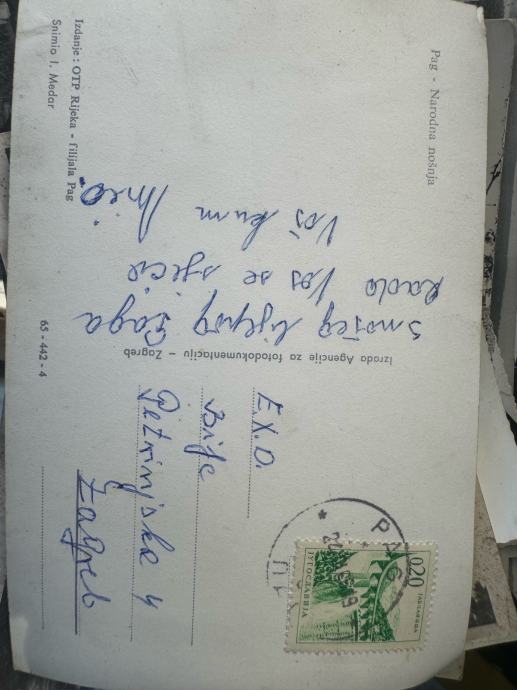 Pag - Narodna nošnja
S našeg lijepog Paga
Rado Vas se sjeća
Vaš kum
Izdanje: OTP Rijeka - filijala Pag
Snimio I. Medar
Izrada Agencije za fotodokumentaciju - Zagreb
65-442-4
E.X.O.
Petrinjska 4
Zagreb
PAG
0,20
ЈАБЛАНИЦА
ЈУГОСЛАВИЈА